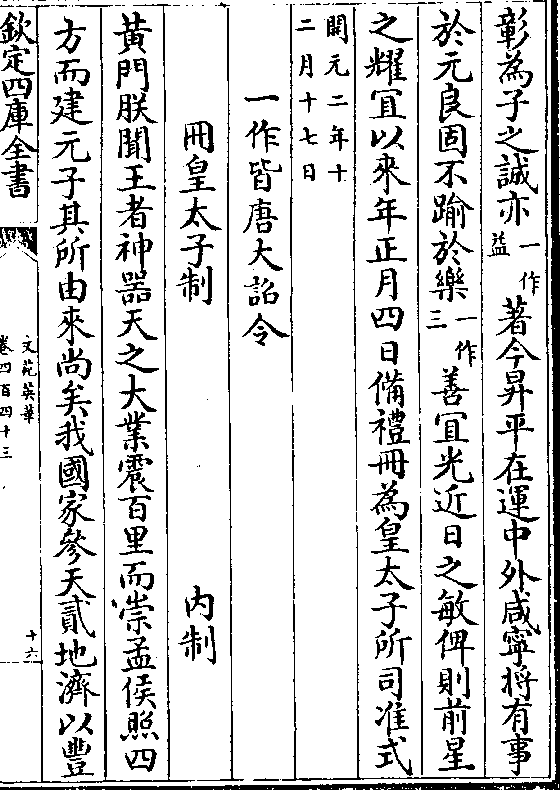 彰為子之誠亦一作益著今昇平在運中外咸寧將有事
於元良固不踰於樂一作三善宜光近日之敏俾則前星
之耀宜以來年正月四日備禮冊為皇太子所司准式
開元二年十
二月十七日
一作皆唐大詔令
冊皇太子制 内制
黄門朕聞王者神器天之大業震百里而崇孟侯照四
方而建元子其所由來尚矣我國家參天貳地濟以豐
欽定四庫全書
文苑英華
卷四百四十三
十六